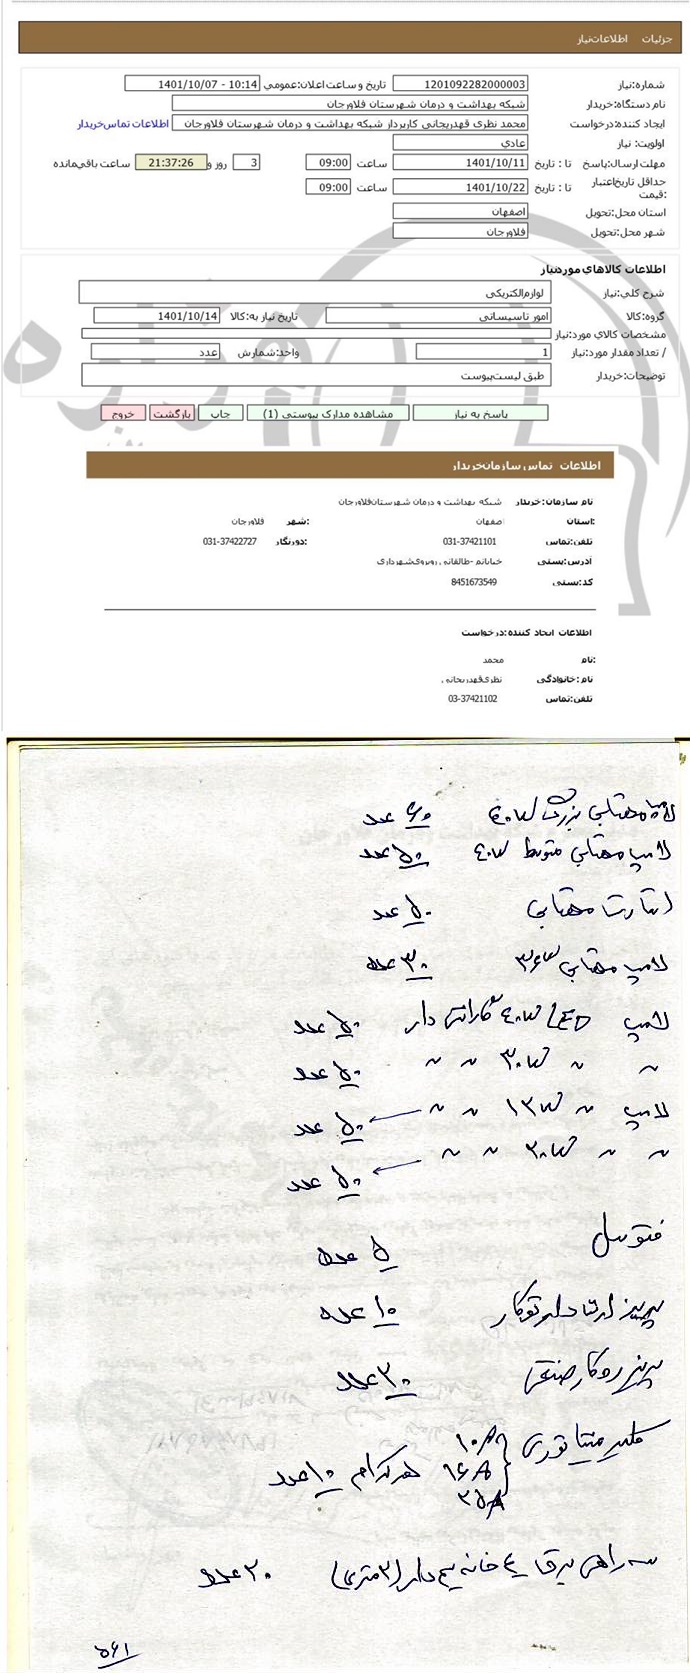 جزئیات اطلاعات‌نیاز
شماره:نیاز 1201092282000003 تاریخ و ساعت اعلان:عمومی 1401/10/07 - 10:14
نام دستگاه:خریدار شبکه بهداشت و درمان شهرستان فلاورجان
ایجاد کننده:درخواست محمد نظری قهدریجانی کاربردار شبکه بهداشت و درمان شهرستان فلاورجان اطلاعات تماس‌خریدار
اولویت: نیاز عادی
مهلت ارسال:پاسخ تا : تاریخ 1401/10/11 ساعت 09:00 3 روز و 21:37:26 ساعت باقی‌مانده
حداقل تاریخ‌اعتبار تا : تاریخ 1401/10/22 ساعت 09:00
:قیمت
استان محل:تحویل اصفهان
شهر محل:تحویل فلاورجان
اطلاعات کالاهای موردنیاز
شرح کلی:نیاز لوازم‌الکتریکی
گروه:کالا امور تاسیساتی تاریخ نیاز به:کالا 1401/10/14
مشخصات کالای مورد:نیاز
/ تعداد مقدار مورد:نیاز 1 واحد:شمارش عدد
توضیحات:خریدار طبق لیست‌پیوست
پاسخ به نیاز مشاهده مدارک پیوستی (1) چاپ بازگشت خروج
اطلاعات تماس سازمان‌خریدار
نام سازمان:خریدار شبکه بهداشت و درمان شهرستان‌فلاورجان
:استان اصفهان :شهر فلاورجان
تلفن:تماس 031-37421101 :دورنگار 031-37422727
آدرس:پستی خیابانم -طالقانی روبروی‌شهرداری
کد:پستی 8451673549
اطلاعات ایجاد کننده:درخواست
:نام محمد
نام:خانوادگی نظری‌قهدریجانی
تلفن:تماس 03-37421102
لامپ مهتابی بزرگ ۴۰w ۶۰ عدد
لامپ مهتابی متوسط ۴۰w ۵۰ عدد
استارت مهتابی ۵۰ عدد
لامپ مهتابی ۳۶w ۳۰ عدد
لامپ LED ۴۰w گارانتی دار ۵۰ عدد
〃 〃 ۳۰w 〃 〃 ۵۰ عدد
لامپ 〃 ۱۳w 〃 〃 ← ۵۰ عدد
〃 〃 ۲۰w 〃 〃 ← ۵۰ عدد
فتوسل ۵ عدد
پریز ارت دار توکار ۱۰ عدد
پریز روکار صنعتی ۳۰ عدد
کلید مینیاتوری ۱۰A ۱۶A ۲۵A هرکدام ۱۰ عدد
سه راهی برق ۴ خانه سیم دار (۳ متری) ۲۰ عدد
۵۶۱